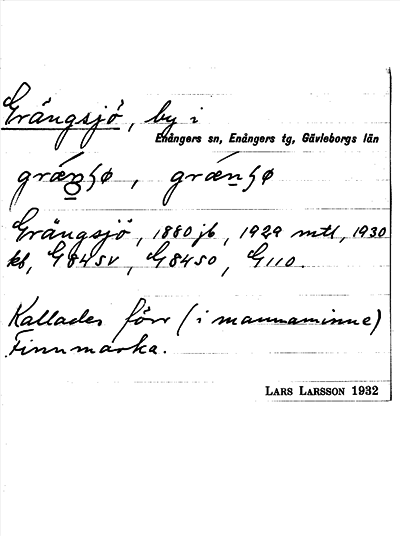 Grängsjö, by i
Enångers sn, Enångers tg, Gävleborgs län
Grängsjö, 1880 jb, 1929 mtl, 1930
kb, G84SV, G84SO, G110.
Kallades förr (i mannaminne)
Finnmarka.
LARS LARSSON 1932